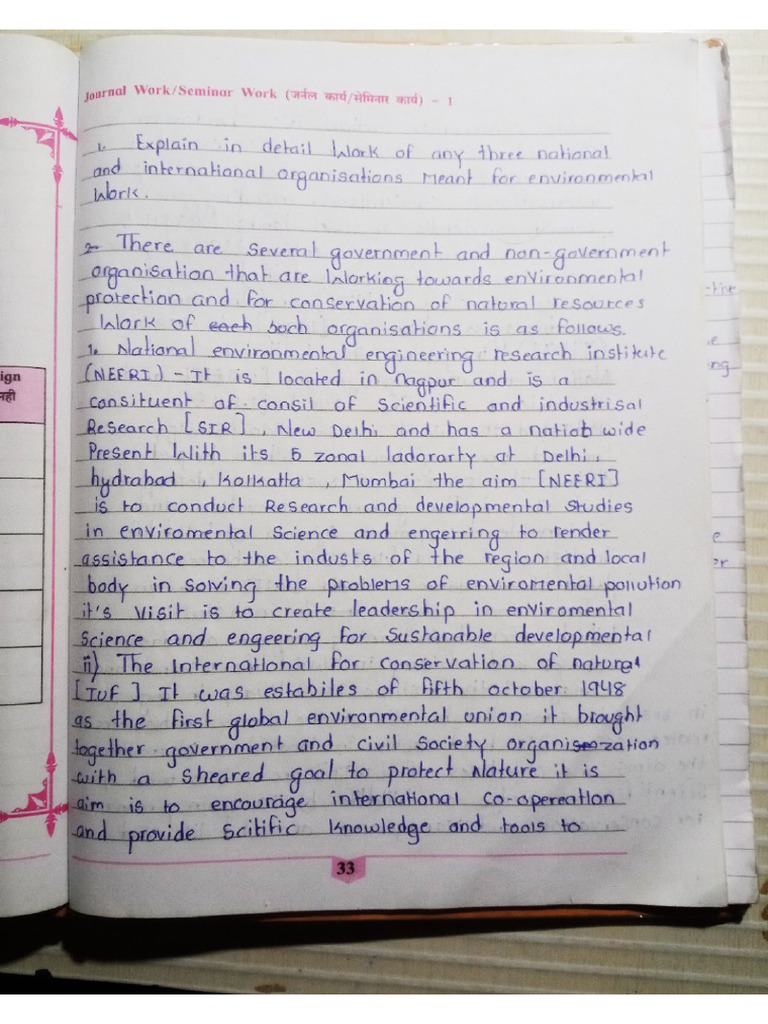 Journal Work/Seminar Work (जर्नल कार्य/सेमिनार कार्य) - 1
1. Explain in detail Work of any three national
and international organisations Meant for environmental
Work.
2- There are several government and non-government
organisation that are Working towards environmental
protection and for conservation of natural resources
Work of each such organisations is as follows.
1. National environmental engineering research institute
(NEERI) - It is located in Nagpur and is a
consituent of consil of Scientific and industrisal
Research [SIR], New Delhi and has a nation wide
Present With its 5 zonal ladorarty at Delhi,
hydrabad, Kolkatta, Mumbai the aim [NEERI]
is to conduct Research and developmental studies
in enviromental Science and engerring to render
assistance to the industs of the region and local
body in solving the problems of enviromental pollution
it's Visit is to create leadership in enviromental
Science and engeering for sustanable developmental
ii) The International for conservation of natural
[IUF] It was estabiles of fifth october 1948
as the first global environmental union it brought
together government and civil Society organization
with a Sheared goal to protect Nature it is
aim is to encourage international co-opereation
and provide Scitific Knowledge and tools to
33
ign
नही